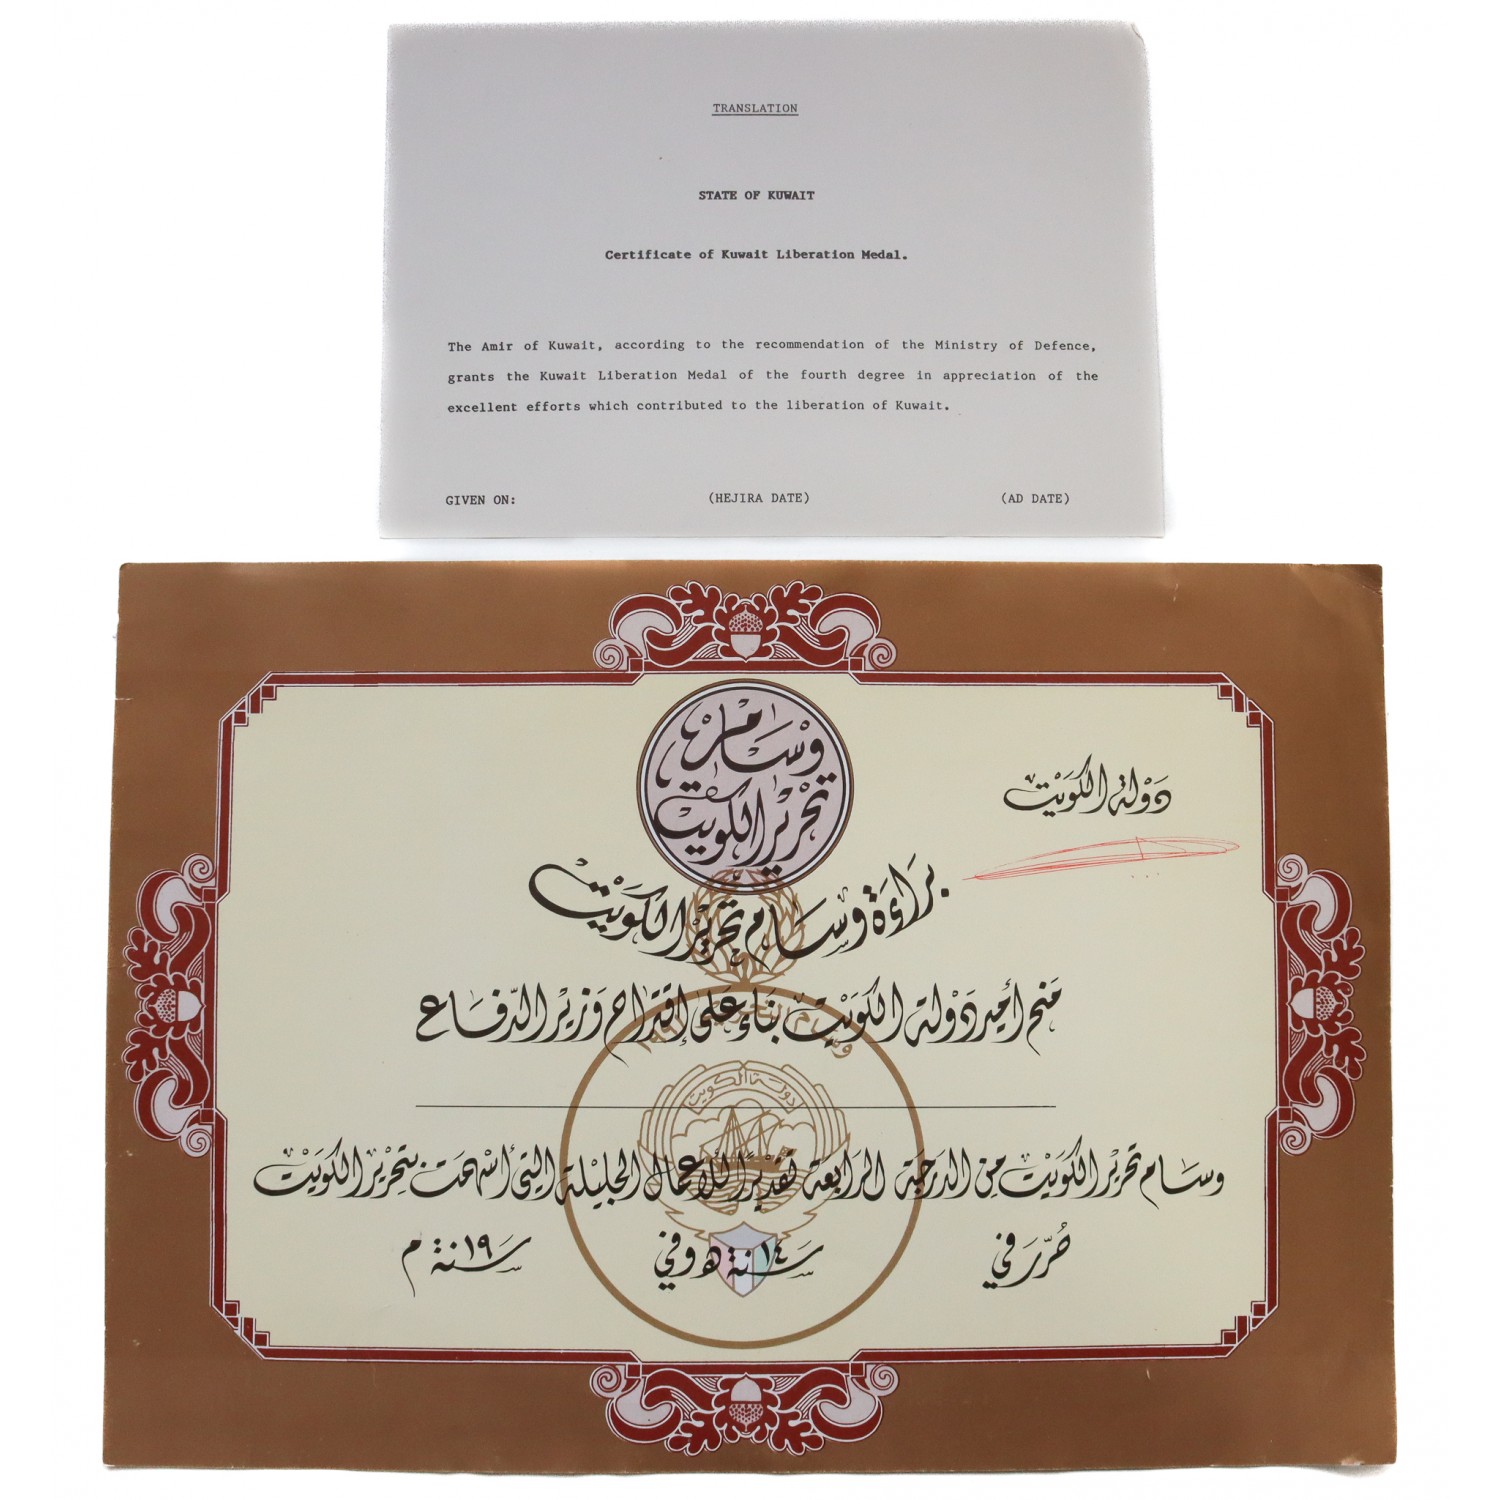 TRANSLATION
STATE OF KUWAIT
Certificate of Kuwait Liberation Medal.
The Amir of Kuwait, according to the recommendation of the Ministry of Defence,
grants the Kuwait Liberation Medal of the fourth degree in appreciation of the
excellent efforts which contributed to the liberation of Kuwait.
GIVEN ON: (HEJIRA DATE) (AD DATE)
وسام
تحرير الكويت
دولة الكويت
براءة وسام تحرير الكويت
منح أمير دولة الكويت بناء على إقتراح وزير الدفاع
دولة الكويت
وسام تحرير الكويت من الدرجة الرابعة تقديرًا للأعمال الجليلة التي أسهمت بتحرير الكويت
حُرّر في سنة ١٤ هـ وفي سنة ١٩ م